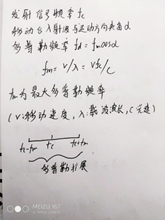 发射信号频率 fc
移动台入射波与运动方向夹角α
多普勒频率 fd = fm cosα
fm = v/λ = vfc/c
fm为最大多普勒频率
(v:移动速度, λ:载波波长, c:光速)
fc-fm fc fc+fm
多普勒扩展